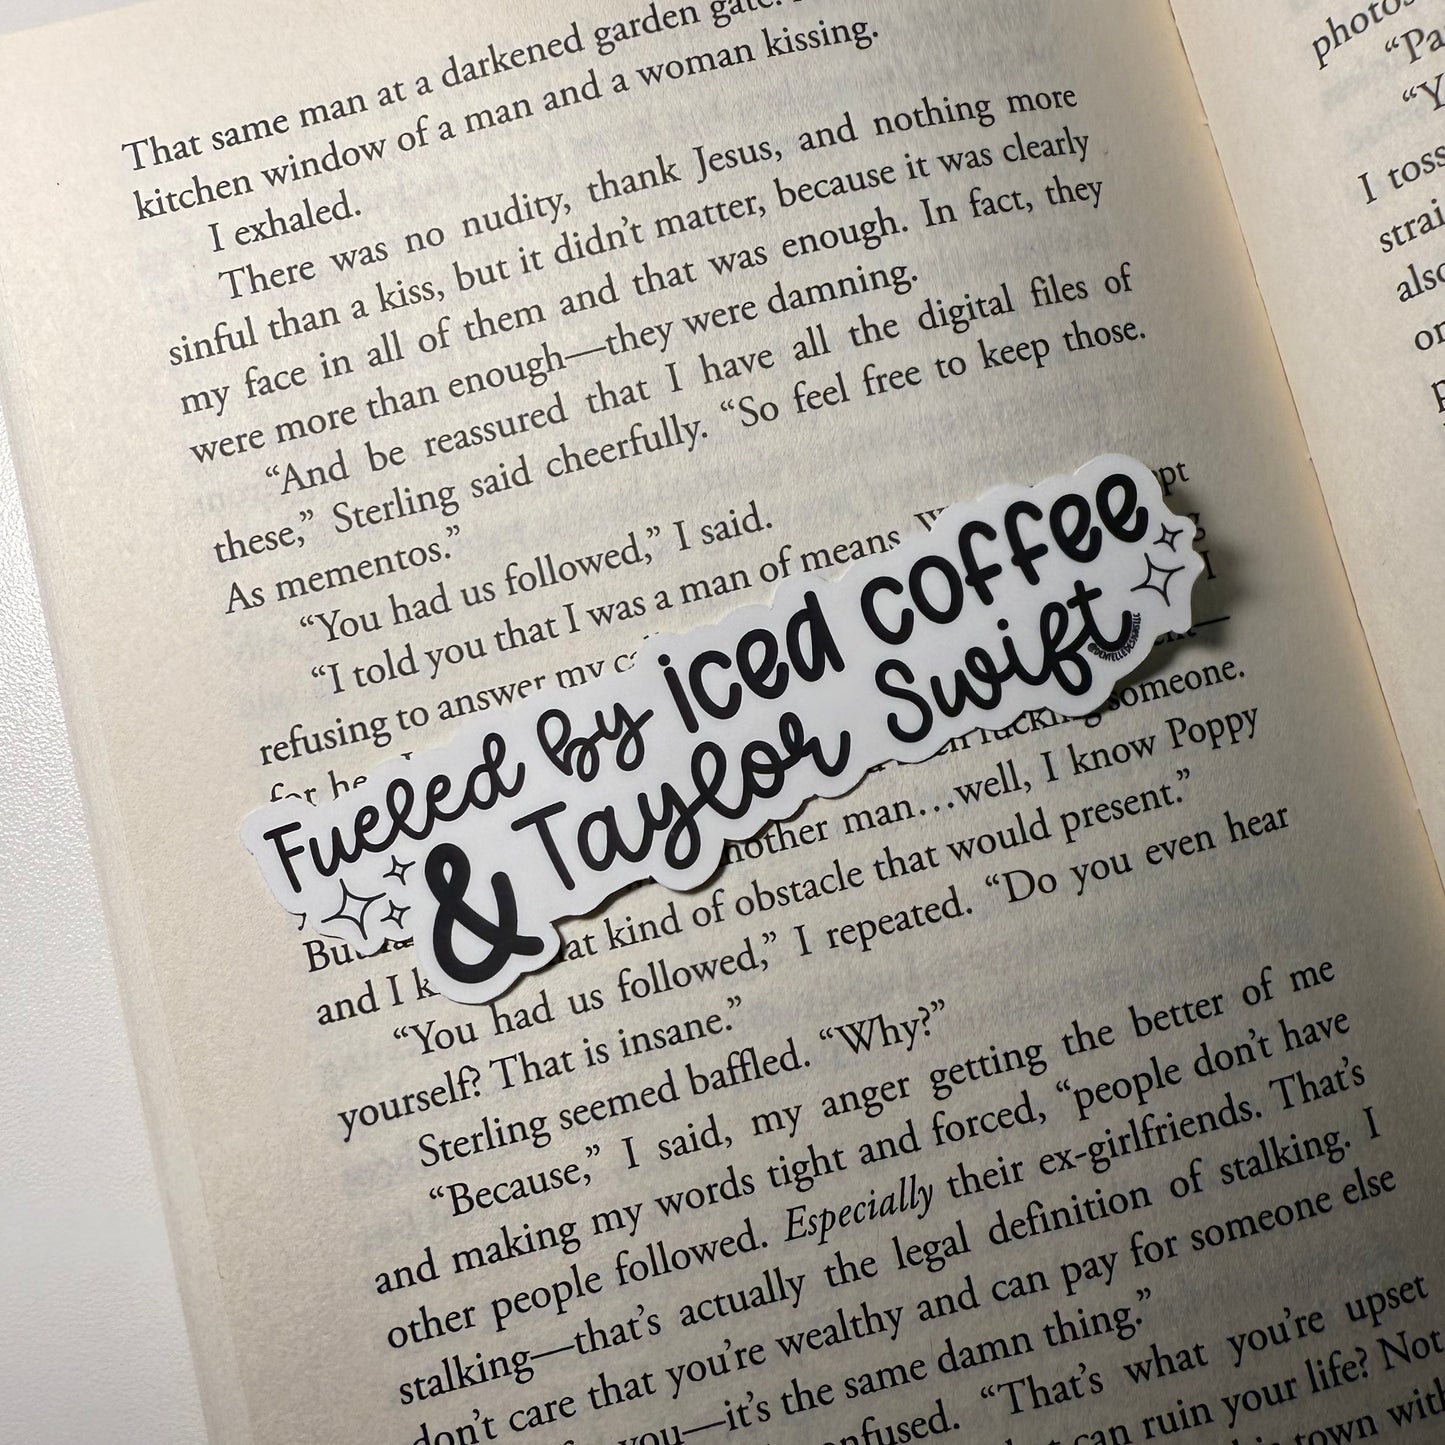 That same man at a darkened garden gate.
kitchen window of a man and a woman kissing.
I exhaled.
There was no nudity, thank Jesus, and nothing more
sinful than a kiss, but it didn't matter, because it was clearly
my face in all of them and that was enough. In fact, they
were more than enough—they were damning.
“And be reassured that I have all the digital files of
these,” Sterling said cheerfully. “So feel free to keep those.
As mementos.”
“You had us followed,” I said.
“I told you that I was a man of means
refusing to answer my
for
I
Fueled by iced coffee
& Taylor Swift
someone.
man…well, I know Poppy
But
and I kind of obstacle that would present.”
“You had us followed,” I repeated. “Do you even hear
yourself? That is insane.”
Sterling seemed baffled. “Why?”
“Because,” I said, my anger getting the better of me
and making my words tight and forced, “people don't have
other people followed. Especially their ex-girlfriends. That's
stalking—that's actually the legal definition of stalking. I
don't care that you're wealthy and can pay for someone else
you—it's the same damn thing.”
“That's what you're upset
can ruin your life? Not
town with
photos
“Pa
“Y
I toss
strai
also